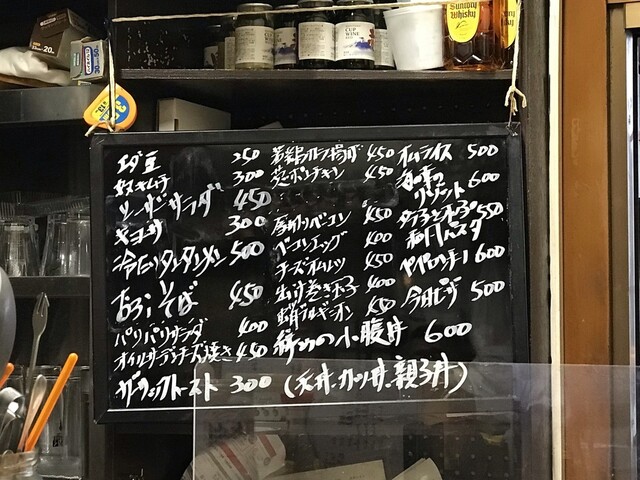 エダ豆 250
キムチ 300
シーザーサラダ 450
ギョーザ 300
冷たいタンタンメン 500
おろしそば 450
パリパリサラダ 400
オイルサーディンチーズ焼き 450
ガーリックトースト 300
若鶏唐揚げ 450
ポンチキン 450
厚切りベーコン 450
ベーコンエッグ 400
チーズオムレツ 450
出汁巻き玉子 400
450
小腹丼 600
(天丼、カツ丼、親子丼)
オムライス 500
リゾット 600
550
和風パスタ
ペペロンチーノ 600
今日ピザ 500
CUP WINE
SUNTORY
Whisky